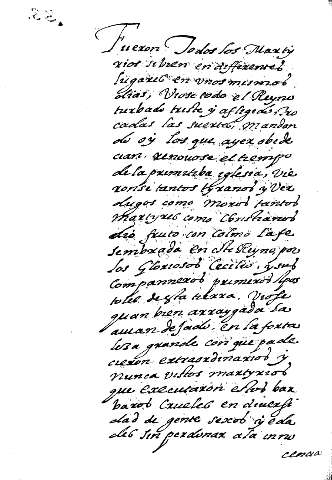 Fueron Todos los Marty
rios sibien en differentes
lugares en unos mismos
dias, Viose todo el Reyno
turbado triste y afligido, Tro
cadas las suertes, Mandan
do oy los que ayer obede
cian, renovose el tiempo
de la primitiba iglesia, Vie
ronse tantos tyranos y Ver
dugos como Moros tantos
Martyres como Christianos
dio fruto con colmo la fe
sembrada en este Reyno, por
los Gloriosos Cecilio, y sus
companneros primeros Apos
toles desta tierra. Viose
quan bien arraygada la
avian dejado, en la forta
leza grande con que pade
cieron extraordinarios y
Nunca vistos martyrios
que executaron estos bar
baros Crueles en diversi
dad de gente sexos y eda
des sin perdonar a la inno
cencia